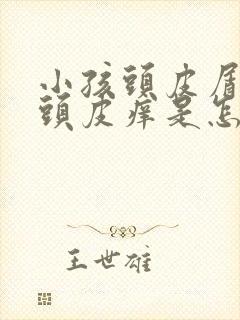 小孩頭皮屑
頭皮痒是怎
王世雄